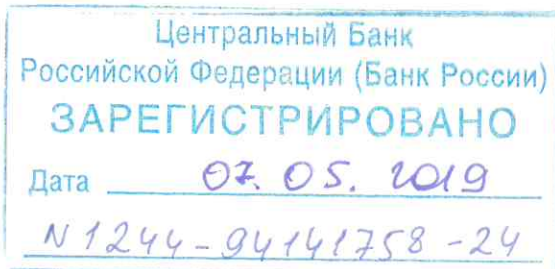 Центральный Банк
Российской Федерации (Банк России)
ЗАРЕГИСТРИРОВАНО
Дата 07. 05. 2019
N 1244-94141758-24